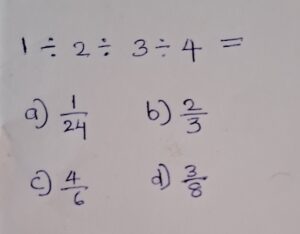 1 ÷ 2 ÷ 3 ÷ 4 =
a) 1/24 b) 2/3
c) 4/6 d) 3/8